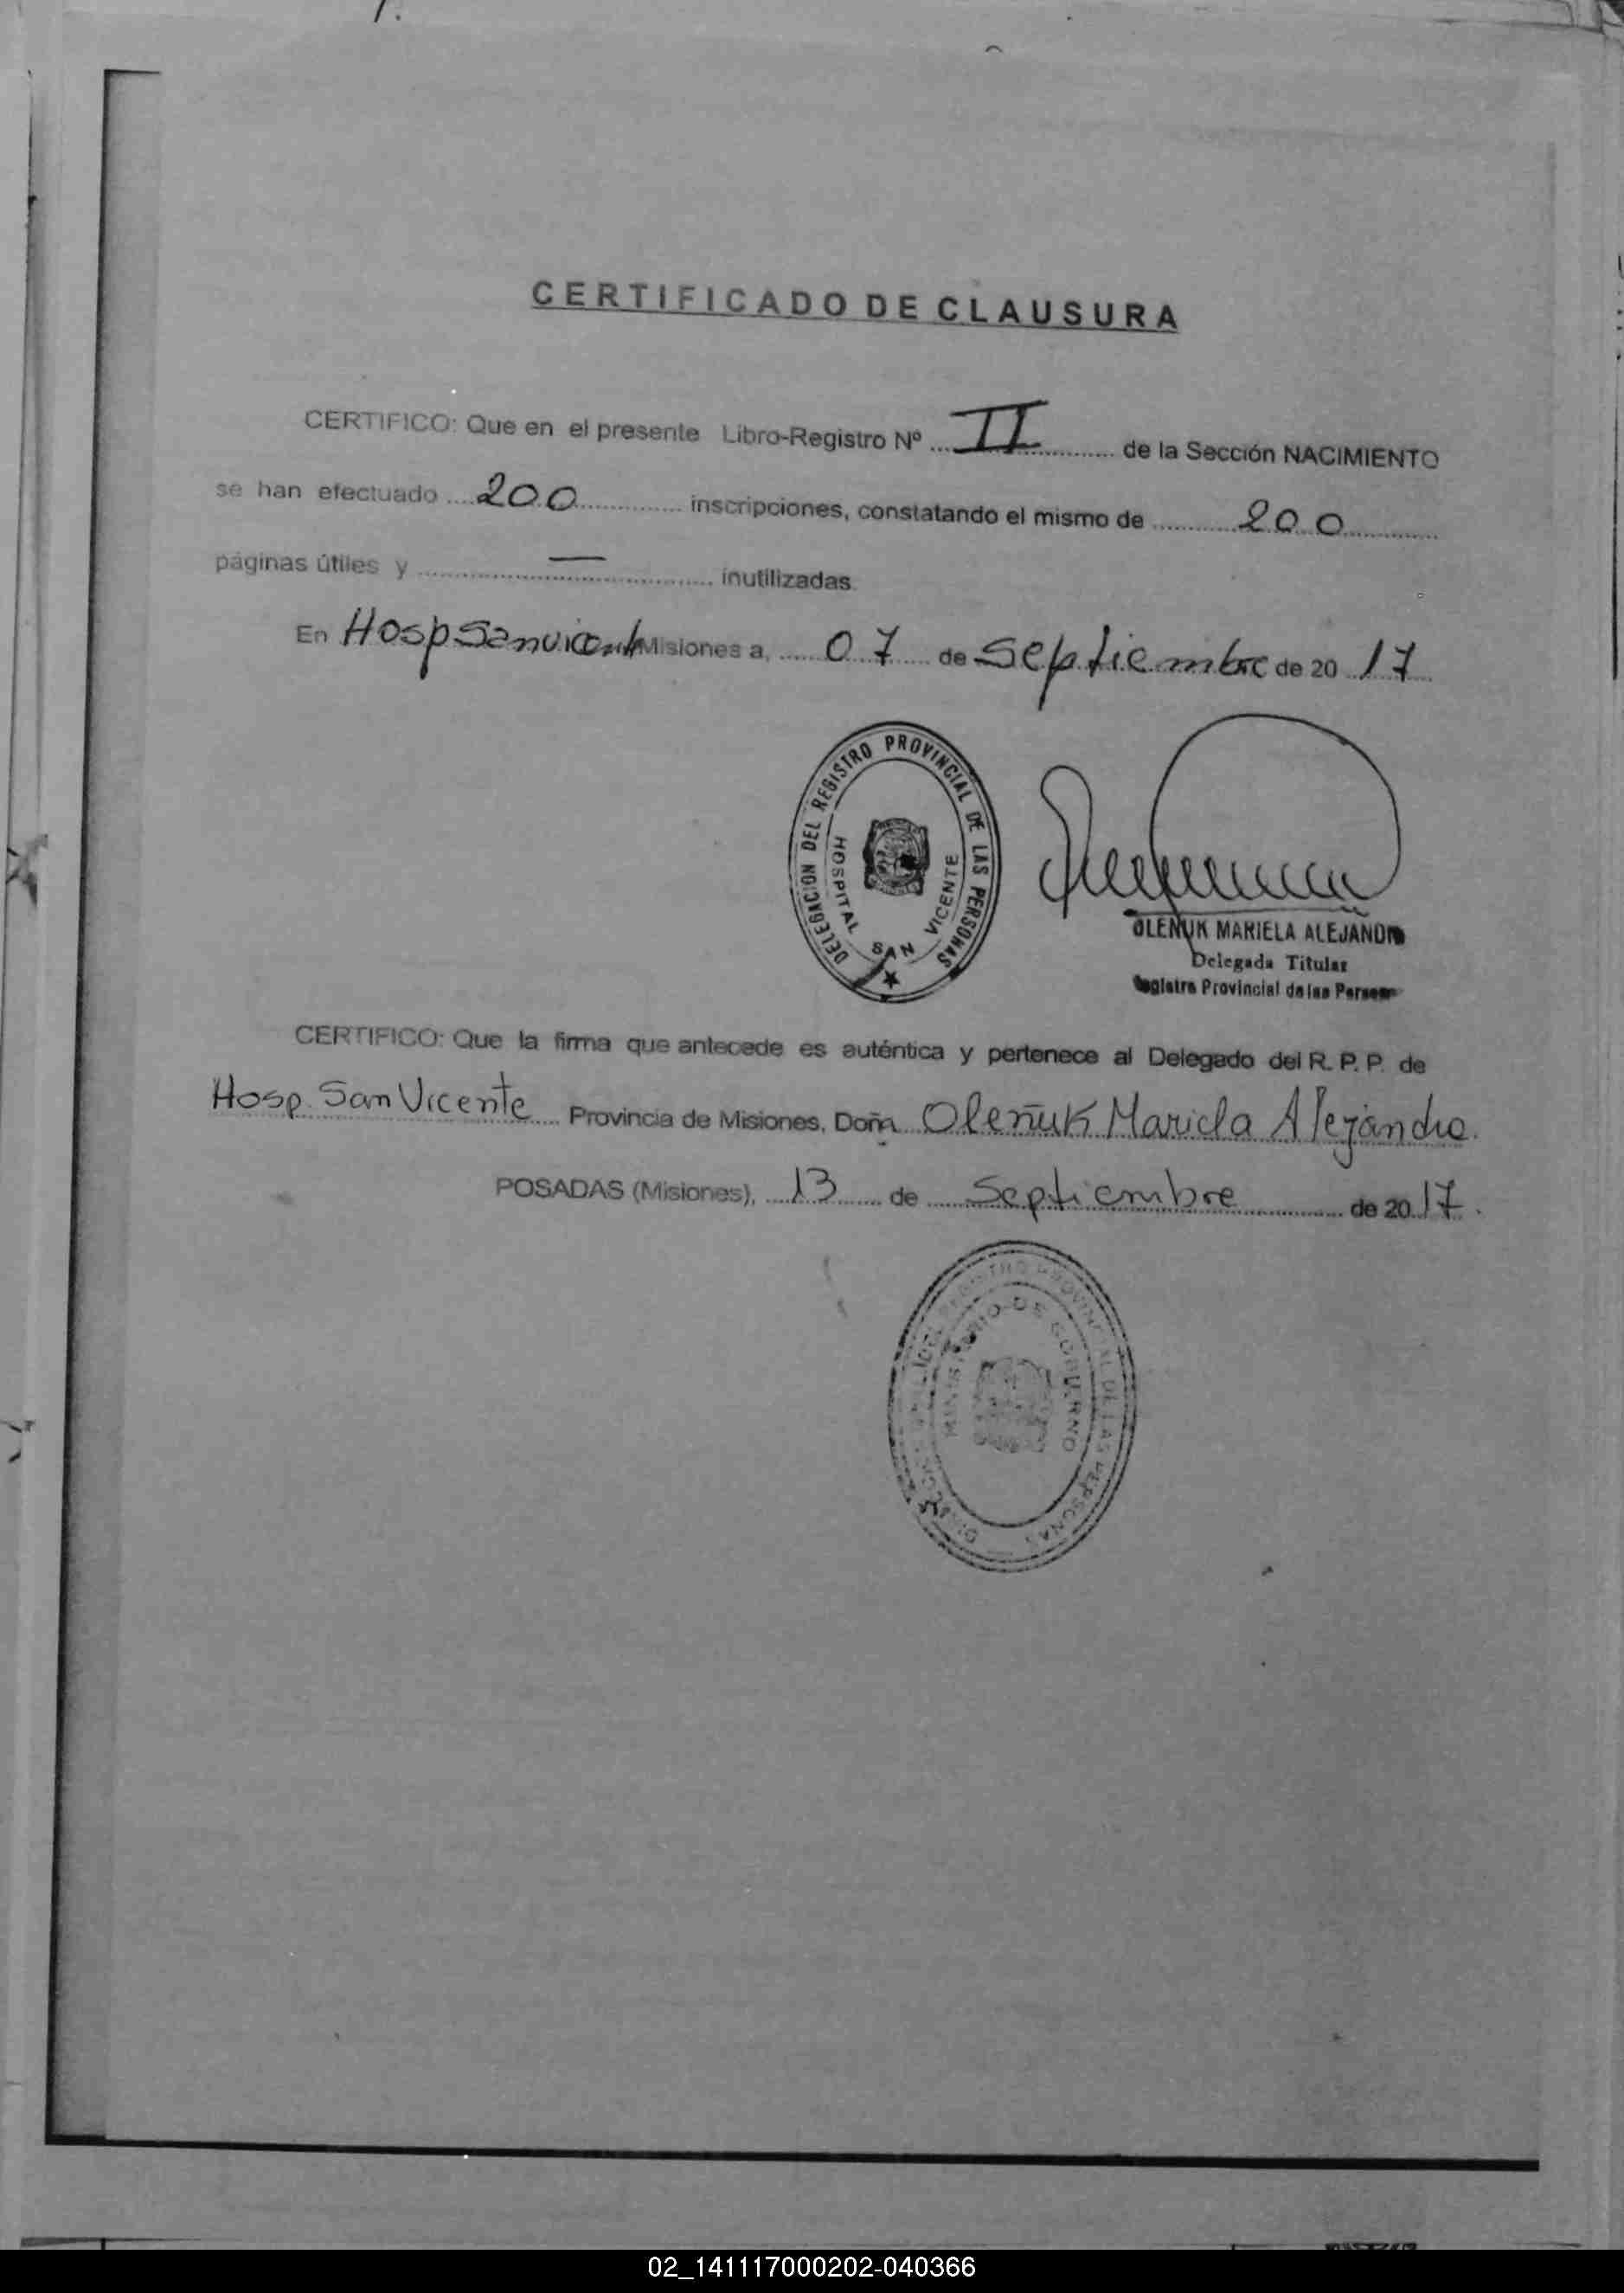 CERTIFICADO DE CLAUSURA
CERTIFICO: Que en el presente Libro-Registro Nº II de la Sección NACIMIENTO
se han efectuado 200 inscripciones, constatando el mismo de 200
páginas útiles y — inutilizadas.
En Hosp San Vicente Misiones a, 07 de Septiembre de 20 17
DELEGACION DEL REGISTRO PROVINCIAL DE LAS PERSONAS
HOSPITAL SAN VICENTE
OLEÑUK MARIELA ALEJANDR
Delegada Titular
Registro Provincial de las Person
CERTIFICO: Que la firma que antecede es auténtica y pertenece al Delegado del R. P. P. de
Hosp. San Vicente Provincia de Misiones, Doña Oleñuk Mariela Alejandra.
POSADAS (Misiones), 13 de Septiembre de 20 17.
REGISTRO PROVINCIAL DE LAS PERSONAS
MINISTERIO DE GOBIERNO
02_141117000202-040366